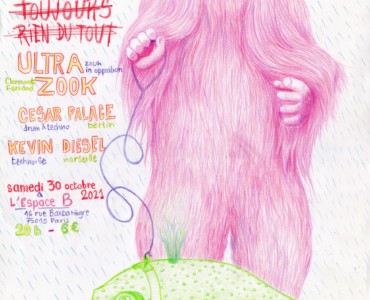 TOUJOURS
RIEN DU TOUT
ULTRA zouk
in opposition
Clermont ZOOK
Ferrand
CESAR PALACE
drum & techno berlin
KEVIN DIESEL
technoise marseille
samedi 30 octobre
à 2021
L'Espace B
16 rue Barbanègre
75019 Paris
20h - 6€